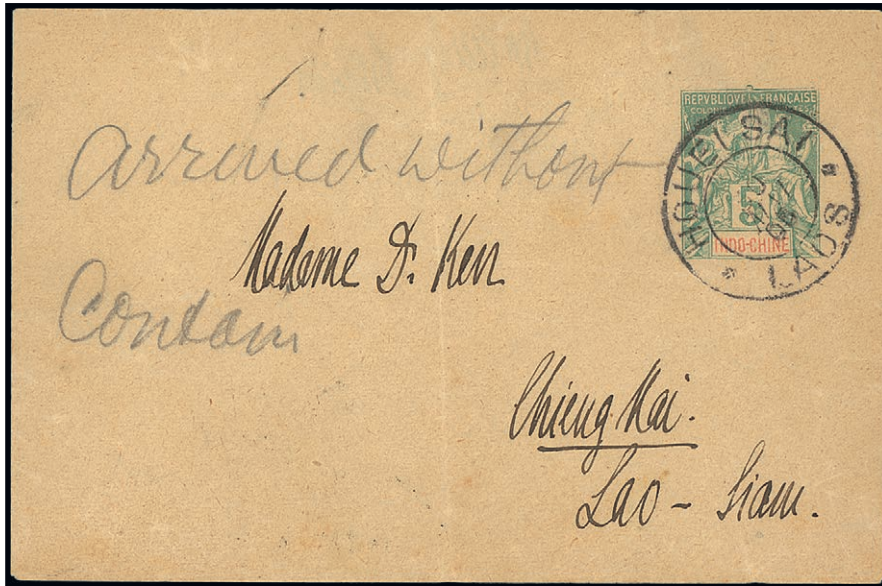 REPVBLIQVE FRANÇAISE
HOUEI SAI
5
INDO-CHINE
LAOS
arrived without
Madame Dr. Kerr
Contain
Chieng Mai.
Lao - Siam.